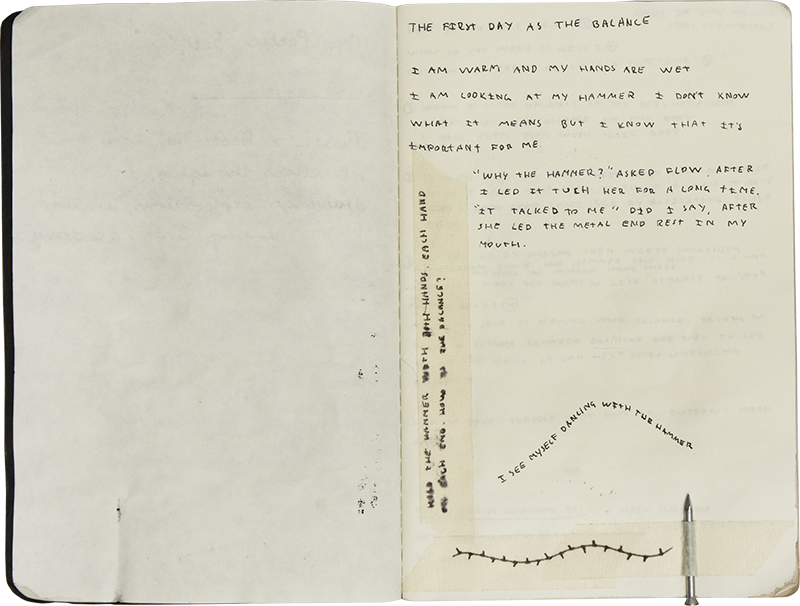 THE FIRST DAY AS THE BALANCE
I AM WARM AND MY HANDS ARE WET
I AM LOOKING AT MY HAMMER I DON'T KNOW
WHAT IT MEANS BUT I KNOW THAT IT'S
IMPORTANT FOR ME.
"WHY THE HAMMER?" ASKED FLOW, AFTER
I LED IT TUCH HER FOR A LONG TIME.
"IT TALKED TO ME" DID I SAY, AFTER
SHE LED THE METAL END REST IN MY
MOUTH.
HOLD THE HAMMER WITH BOTH HANDS, EACH HAND
ON EACH END. HOW IS THE BALANCE?
I SEE MYSELF DANCING WITH THE HAMMER